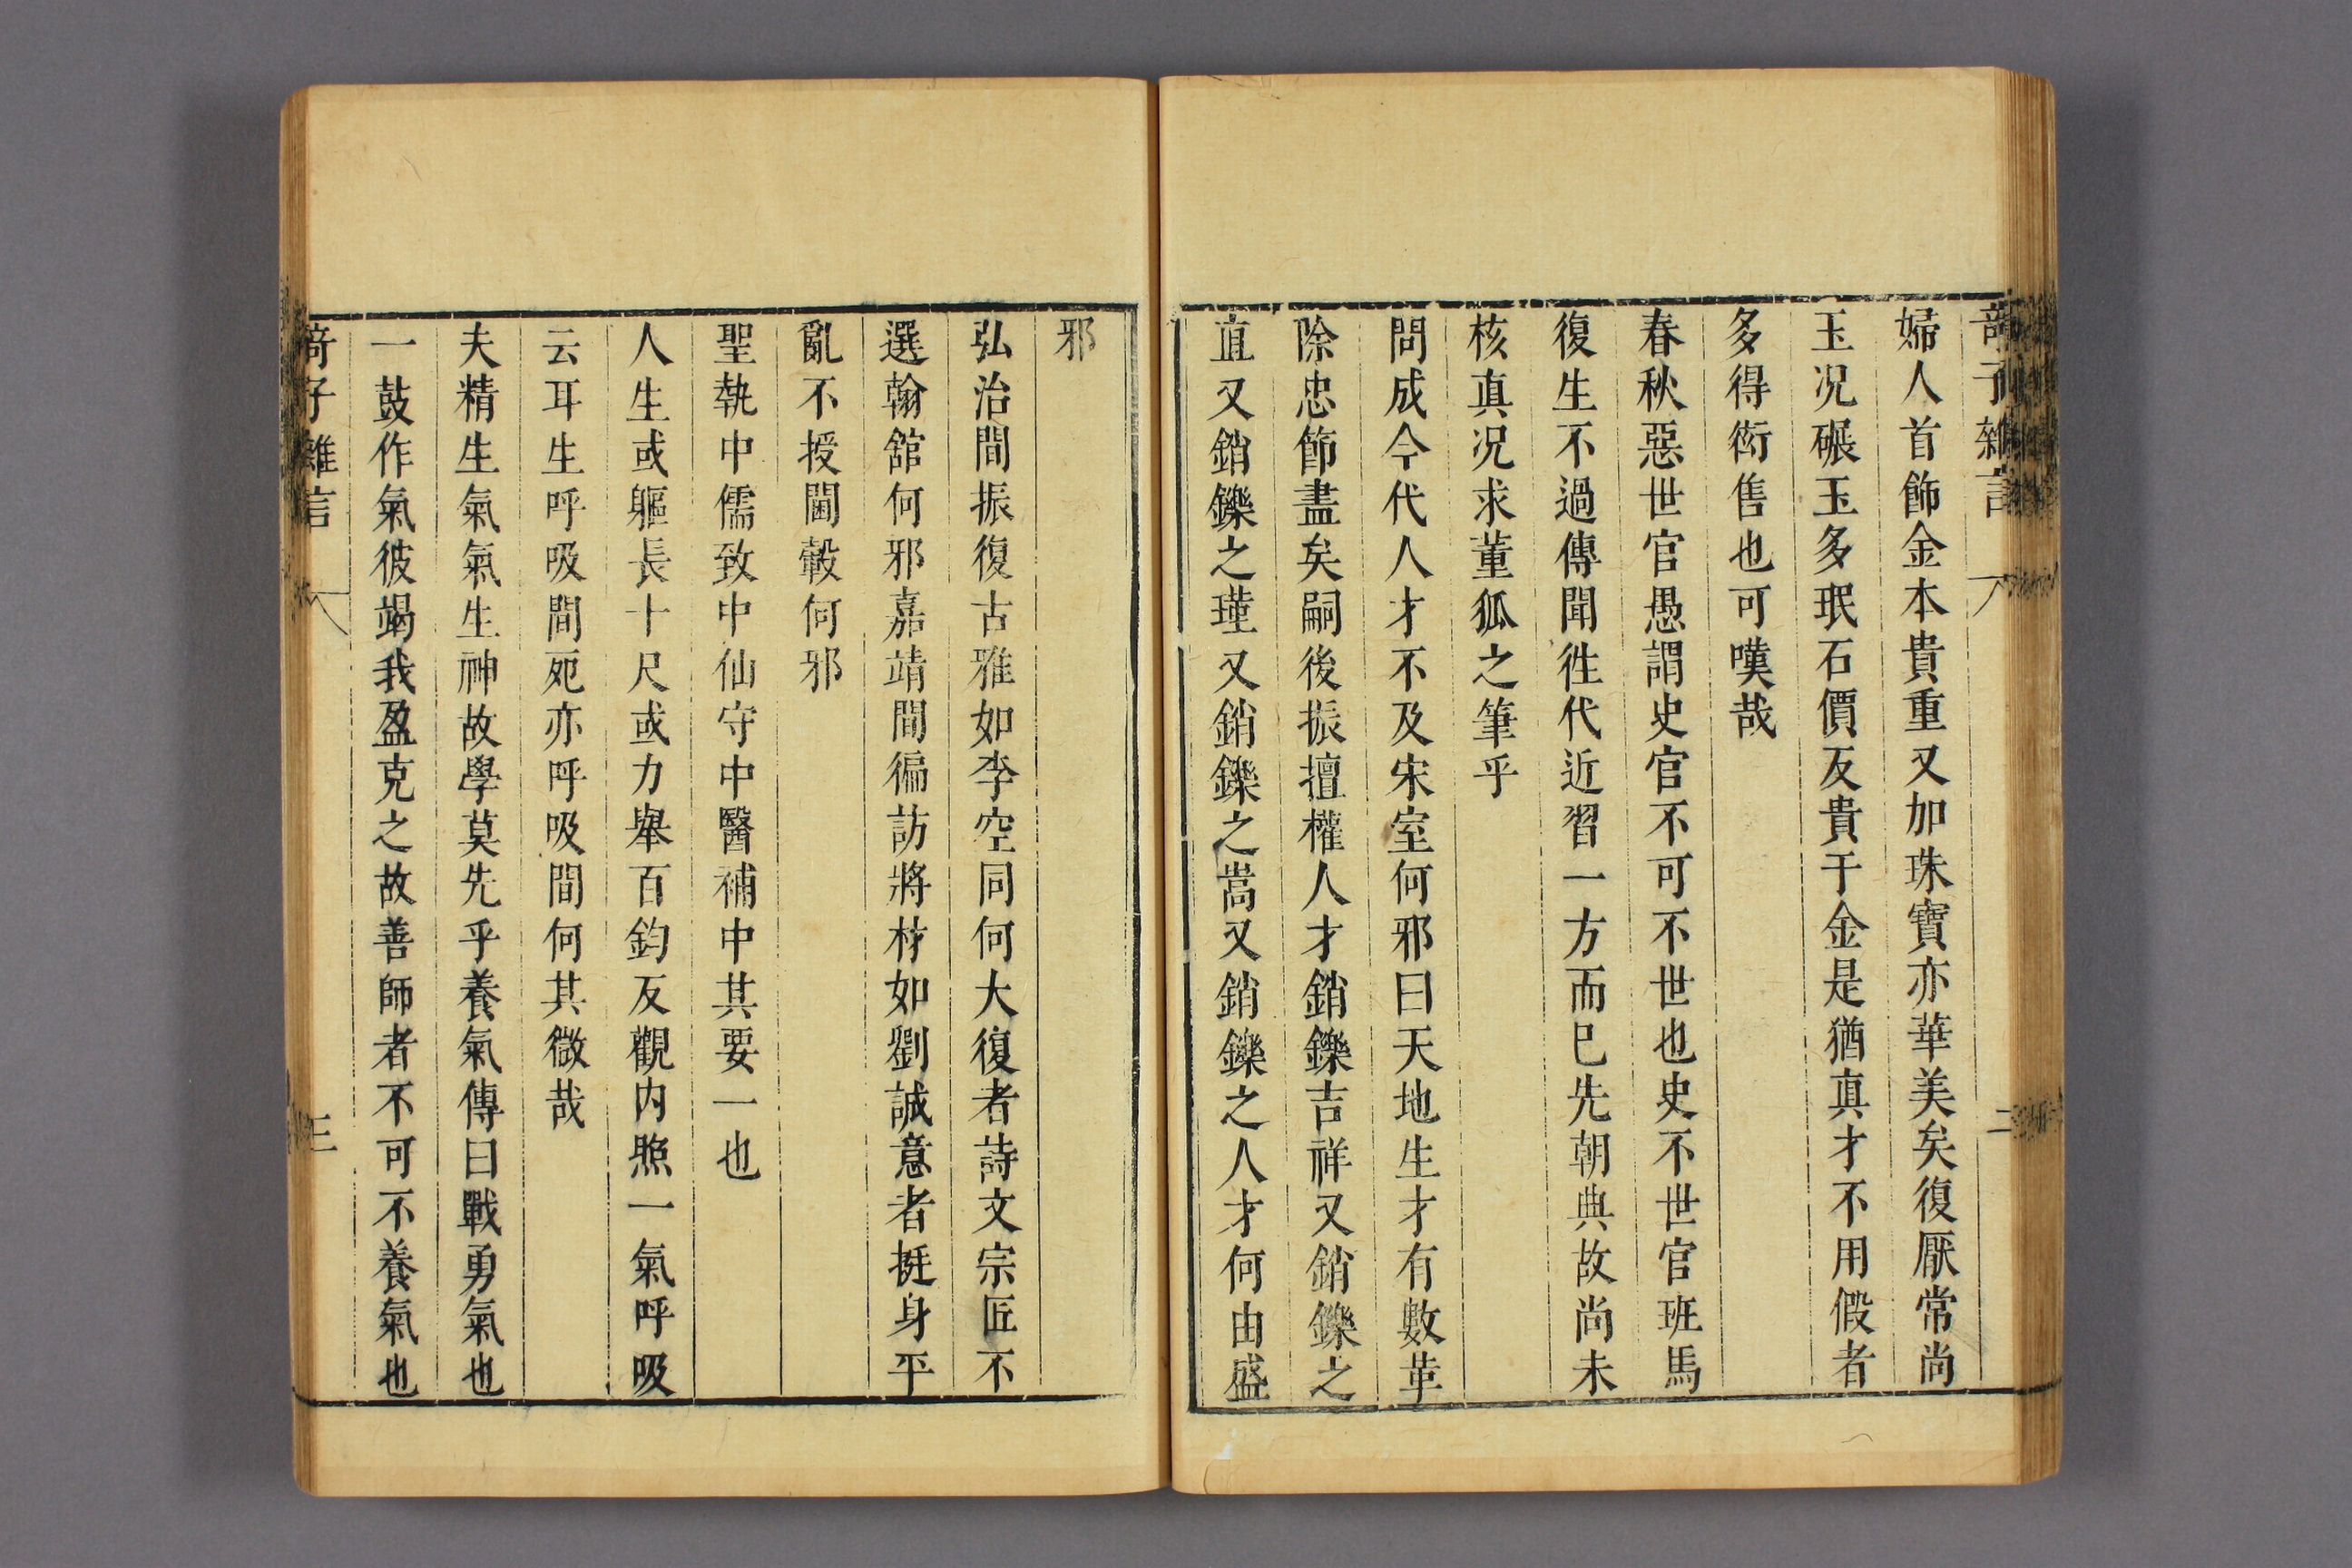 婦人首飾金本貴重又加珠寶亦華美矣復厭常尚
玉况碾玉多珉石價反貴于金是猶真才不用假者
多得衒售也可嘆哉
春秋惡世官愚謂史官不可不世也史不世官班馬
復生不過傳聞徃代近習一方而巳先朝典故尚未
核真况求董狐之筆乎
問成今代人才不及宋室何邪曰天地生才有數革
除忠節盡矣嗣後振擅權人才銷鑠吉祥又銷鑠之
直又銷鑠之瑾又銷鑠之嵩又銷鑠之人才何由盛
邪
弘治間振復古雅如李空同何大復者詩文宗匠不
選翰舘何邪嘉靖間徧訪將材如劉誠意者挺身平
亂不授閫轂何邪
聖執中儒致中仙守中醫補中其要一也
人生或軀長十尺或力舉百鈞反觀内照一氣呼吸
云耳生呼吸間死亦呼吸間何其微哉
夫精生氣氣生神故學莫先乎養氣傳曰戰勇氣也
一鼓作氣彼竭我盈克之故善師者不可不養氣也
子雜言 三